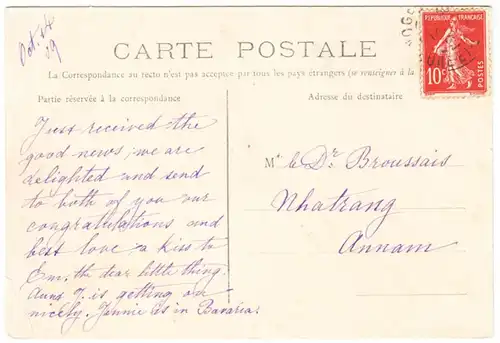 Oct. 24
09
CARTE POSTALE
La Correspondance au recto n'est pas acceptée par tous les pays étrangers (se renseigner à la
Partie réservée à la correspondance
Adresse du destinataire
REPUBLIQUE FRANÇAISE
10c
Just received the
good news; we are
delighted and send
to both of you our
congratulations and
best love & a kiss to
Em, the dear little thing.
Aunt J. is getting on
nicely. Jennie is in Bavaria.
Mr le Dr. Broussais
Nhatrang
Annam